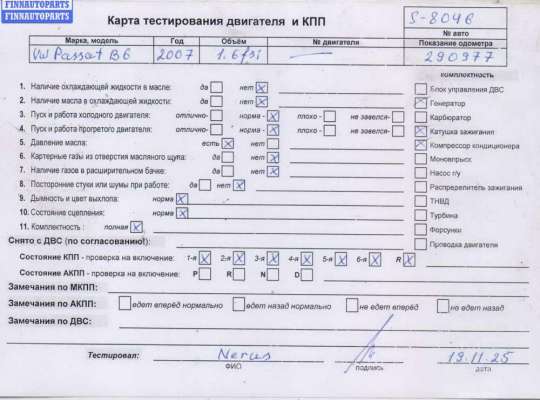 FINNAUTOPARTS
FINNAUTOPARTS
Карта тестирования двигателя и КПП
S-8046
№ авто
Марка, модель Год Объём № двигателя Показание одометра
VW Passat B6 2007 1.6 fsi 290977
комплектность
1. Наличие охлаждающей жидкости в масле: да нет X
2. Наличие масла в охлаждающей жидкости: да нет X
3. Пуск и работа холодного двигателя: отлично- норма - X плохо - не завелся-
4. Пуск и работа прогретого двигателя: отлично- норма - X плохо - не завелся-
5. Давление масла: есть X нет
6. Картерные газы из отверстия масляного щупа: да нет X
7. Наличие газов в расширительном бачке: да нет X
8. Посторонние стуки или шумы при работе: да нет X
9. Дымность и цвет выхлопа: норма X
10. Состояние сцепления: норма X
11. Комплектность : полная X
Блок управления ДВС
Генератор
Карбюратор
X Катушка зажигания
X Компрессор кондиционера
Моновпрыск
Насос г/у
Распределитель зажигания
ТНВД
Турбина
Форсунки
Проводка двигателя
Снято с ДВС (по согласованию!):
Состояние КПП - проверка на включение: 1-я X 2-я X 3-я X 4-я X 5-я X 6-я X R X
Состояние АКПП - проверка на включение: P R N D
Замечания по МКПП:
Замечания по АКПП: едет вперёд нормально едет назад нормально не едет вперёд не едет назад
Замечания по ДВС:
Тестировал: Nerus 19.11.25
ФИО подпись дата